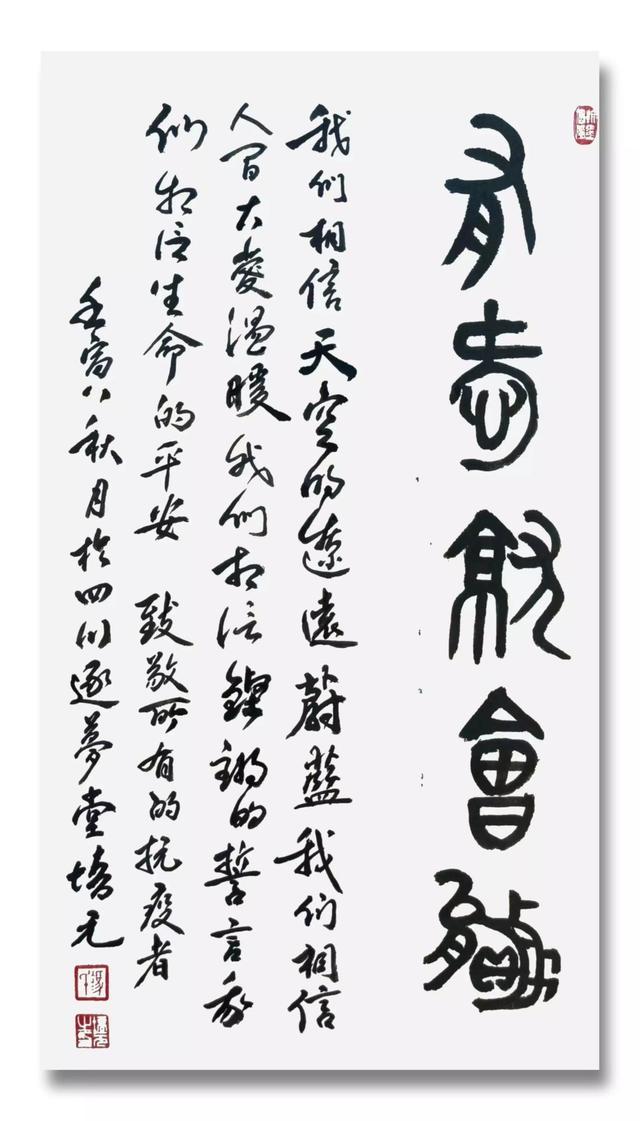 有志就會贏
我们相信天空的遼遠蔚藍我们相信
人间大愛溫暖我们相信鏗鏘的誓言我
们相信生命的平安 致敬所有的抗疫者
壬寅八秋月於四川逐夢堂元